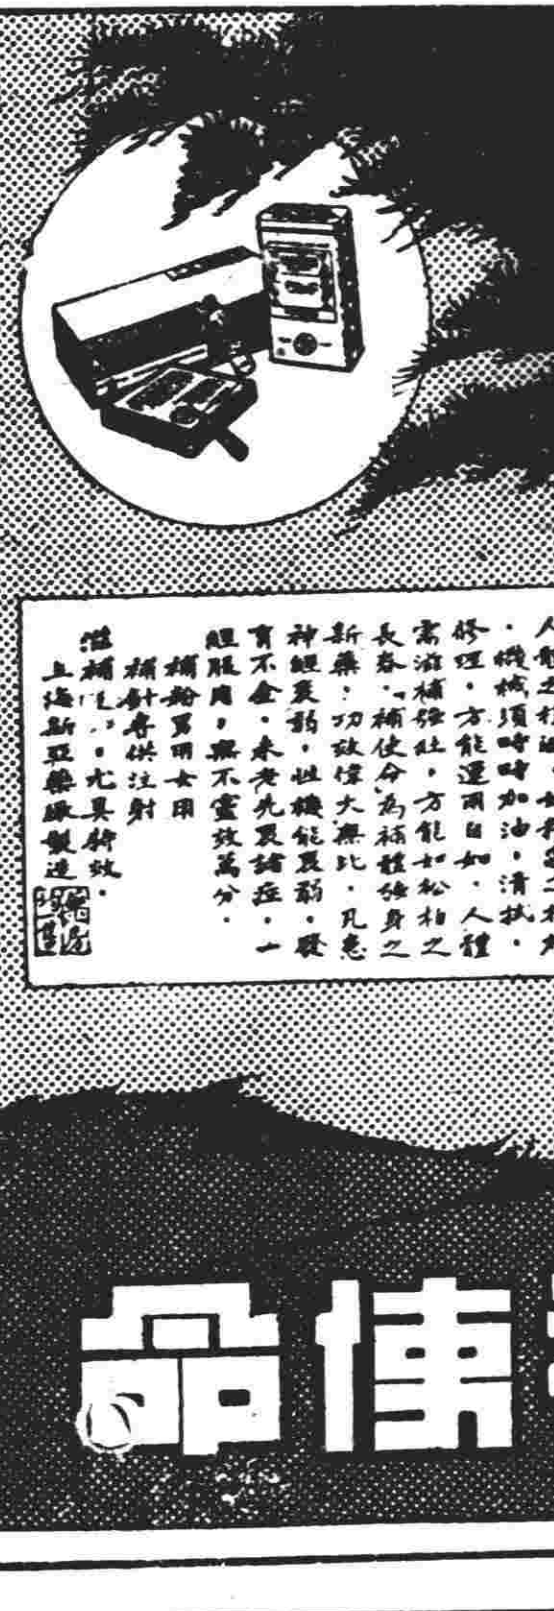 ・機械須時時加油，清拭，
修理，方能運用自如，人體
需滋補強壯，方能如松柏之
長春，補使命為補體強身之
新藥；功效偉大無比，凡患
神經衰弱，性機能衰弱，發
育不全，未老先衰諸症，一
經服用，無不靈效萬分．
補粉男用女用
補針專供注射
滋補，尤具特效．
上海新亞藥廠製造
使命